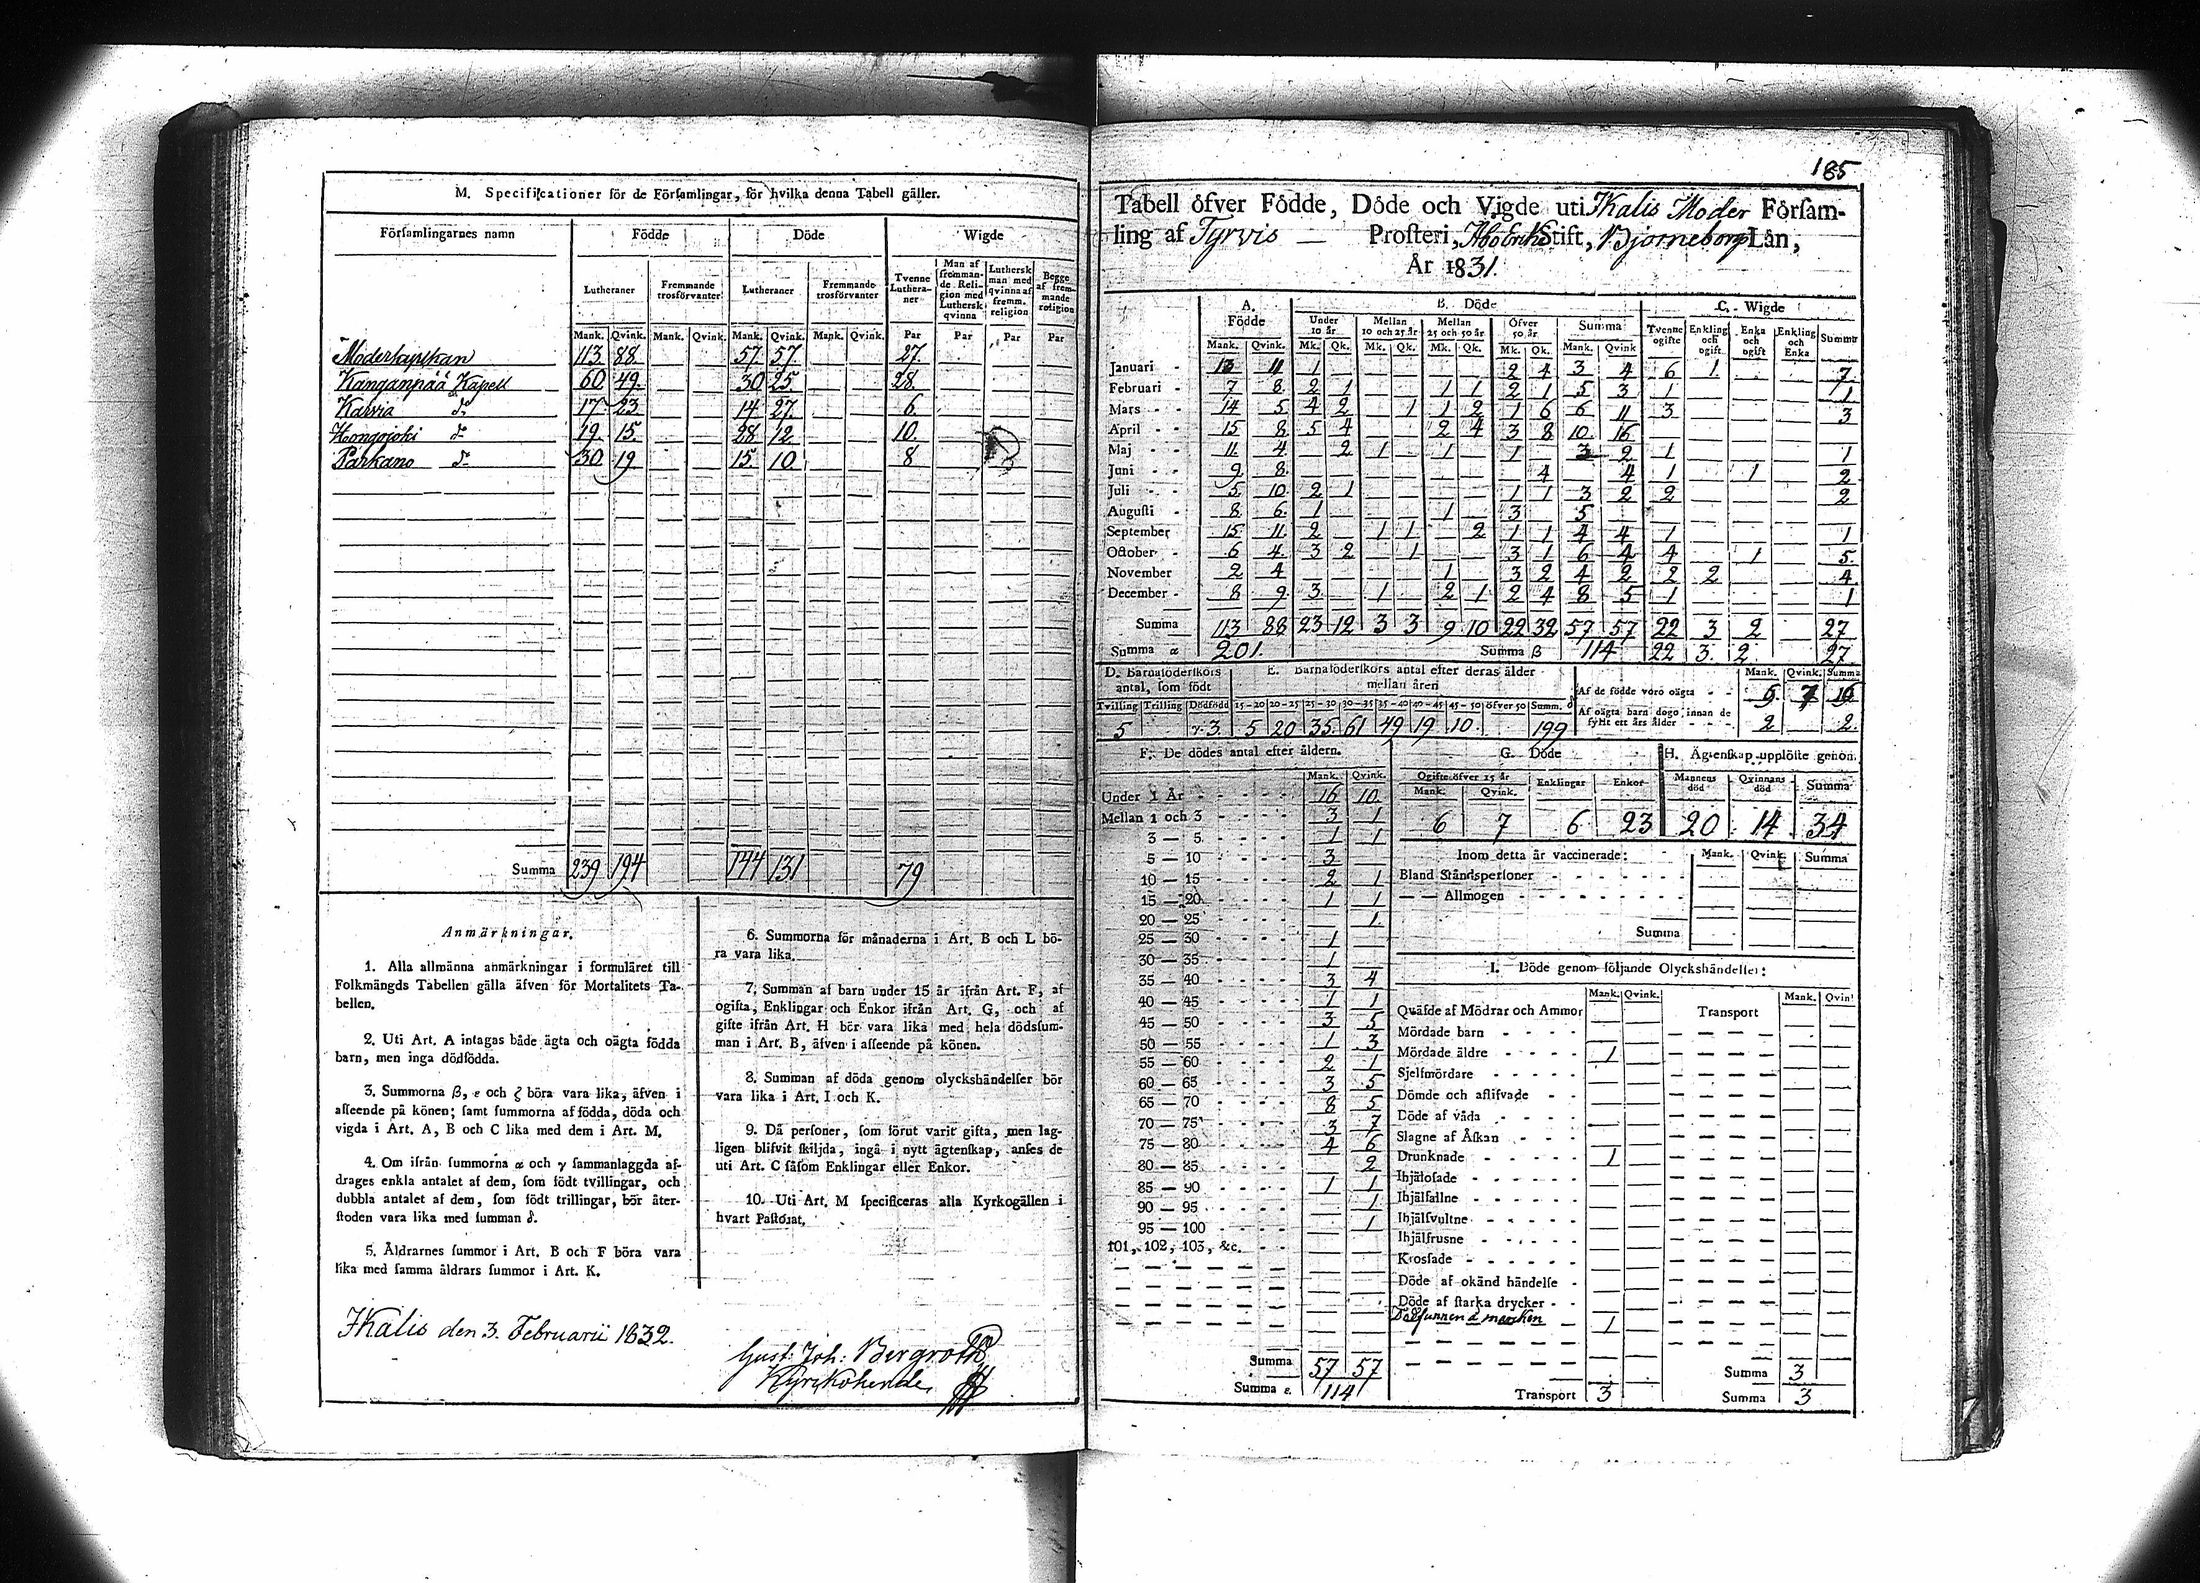 M. Specificationer för de Församlingar, för hvilka denna Tabell gäller.
Församlingarnes namn Födde Döde Wigde
Lutheraner Fremmande trosförvanter Lutheraner Fremmande trosförvanter Tvenne Lutheraner Man af fremmande Religion med Luthersk qvinna Luthersk man med qvinna af fremm. religion Begge af fremmande religion
Mank. Qvink. Mank. Qvink. Mank. Qvink. Mank. Qvink. Par Par Par Par
Moderkyrkan 113 88 57 57 27
Kanganpää Kapell 60 49 30 25 28
Karvia d:o 17 23 14 27 6
Hongojoki d:o 19 15 28 12 10
Parkano d:o 30 19 15 10 8
Summa 239 194 144 131 79
Anmärkningar.
1. Alla allmänna anmärkningar i formuläret till
Folkmängds Tabellen gälla äfven för Mortalitets Ta-
bellen.
2. Uti Art. A intagas både ägta och oägta födda
barn, men inga dödfödda.
3. Summorna β, ε och ζ böra vara lika, äfven i
afseende på könen; samt summorna af födda, döda och
vigda i Art. A, B och C lika med dem i Art. M.
4. Om ifrån summorna α och γ sammanlaggda af-
drages enkla antalet af dem, som födt tvillingar, och
dubbla antalet af dem, som födt trillingar, bör åter-
stoden vara lika med summan δ.
5. Åldrarnes summor i Art. B och F böra vara
lika med samma åldrars summor i Art. K.
6. Summorna för månaderna i Art. B och L bö-
ra vara lika.
7. Summan af barn under 15 år ifrån Art. F, af
ogifta, Enklingar och Enkor ifrån Art. G, och af
gifte ifrån Art. H bör vara lika med hela dödssum-
man i Art. B, äfven i afseende på könen.
8. Summan af döda genom olyckshändelser bör
vara lika i Art. I och K.
9. Då personer, som förut varit gifta, men lag-
ligen blifvit skiljda, ingå i nytt ägtenskap, anses de
uti Art. C såsom Enklingar eller Enkor.
10. Uti Art. M specificeras alla Kyrkogällen i
hvart Pastorat.
Ikalis den 3. Februarii 1832.
Gust: Joh: Bergroth
Kyrkoherde
185
Tabell öfver Födde, Döde och Vigde uti Ikalis Moder Församling
af Tyrvis — Prosteri, Åbo Erke Stift, Björneborgs Län,
År 1831.
A. Födde B. Döde C. Wigde
Under 10 år Mellan 10 och 25 år Mellan 25 och 50 år Öfver 50 år Summa Tvenne ogifte Enkling och ogift Enka och ogift Enkling och Enka Summa
Mank. Qvink. Mk. Qk. Mk. Qk. Mk. Qk. Mk. Qk. Mank. Qvink
Januari 13 11 1 2 4 3 4 6 1 7
Februari 7 8 2 1 1 1 2 1 5 3 1 1
Mars 14 5 4 2 1 1 2 1 6 6 11 3 3
April 15 8 5 4 2 4 3 8 10 16
Maj 11 4 2 1 1 1 3 2 1 1
Juni 9 8 4 4 1 1 2
Juli 5 10 2 1 1 1 3 2 2 2
Augusti 8 6 1 1 3 5
September 15 11 2 1 1 2 1 1 4 4 1 1
October 6 4 3 2 1 3 1 6 4 4 1 5
November 2 4 1 3 2 4 2 2 2 4
December 8 9 3 1 2 1 2 4 8 5 1 1
Summa 113 88 23 12 3 3 9 10 22 32 57 57 22 3 2 27
Summa α 201. Summa β 114 22 3. 2. 27.
D. Barnaföderskors antal, som födt
Tvilling Trilling Dödfödd
5 γ. 3.
E. Barnaföderskors antal efter deras ålder mellan åren
15-20 20-25 25-30 30-35 35-40 40-45 45-50 öfver 50 Summ. δ
5 20 35 61 49 19 10. 199
Mank. Qvink. Summa
Af de födde voro oägta
Af oägta barn dogo innan de fyllt ett års ålder 2 2.
F. De dödes antal efter åldern.
Mank. Qvink.
Under 1 År 16 10
Mellan 1 och 3 3 1
3 — 5 1 1
5 — 10 3
10 — 15 2 1
15 — 20 1 1
20 — 25 1
25 — 30 1
30 — 35 1
35 — 40 3 4
40 — 45 1 1
45 — 50 3 5
50 — 55 1 3
55 — 60 2 1
60 — 65 3 5
65 — 70 8 5
70 — 75 3 7
75 — 80 4 6
80 — 85 2
85 — 90 1 1
90 — 95 1
95 — 100 1
101, 102, 103, &c.
Summa 57 57
Summa ε. 114
G. Döde
Ogifte öfver 15 år Enklingar Enkor
Mank. Qvink.
6 7 6 23
H. Ägtenskap upplöste genom
Mannens död Qvinnans död Summa
20 14 34
Inom detta år vaccinerade: Mank. Qvink. Summa
Bland Ståndspersoner
— — Allmogen
Summa
I. Döde genom följande Olyckshändelser:
Mank. Qvink. Transport Mank. Qvin
Quäfde af Mödrar och Ammor
Mördade barn
Mördade äldre 1
Sjelfmördare
Dömde och aflifvade
Döde af våda
Slagne af Åskan
Drunknade 1
Ihjälosade
Ihjälfallne
Ihjälsvultne
Ihjälfrusne
Krossade
Döde af okänd händelse
Döde af starka drycker
Dödfunnen å marken 1
Summa 3
Transport 3 Summa 3